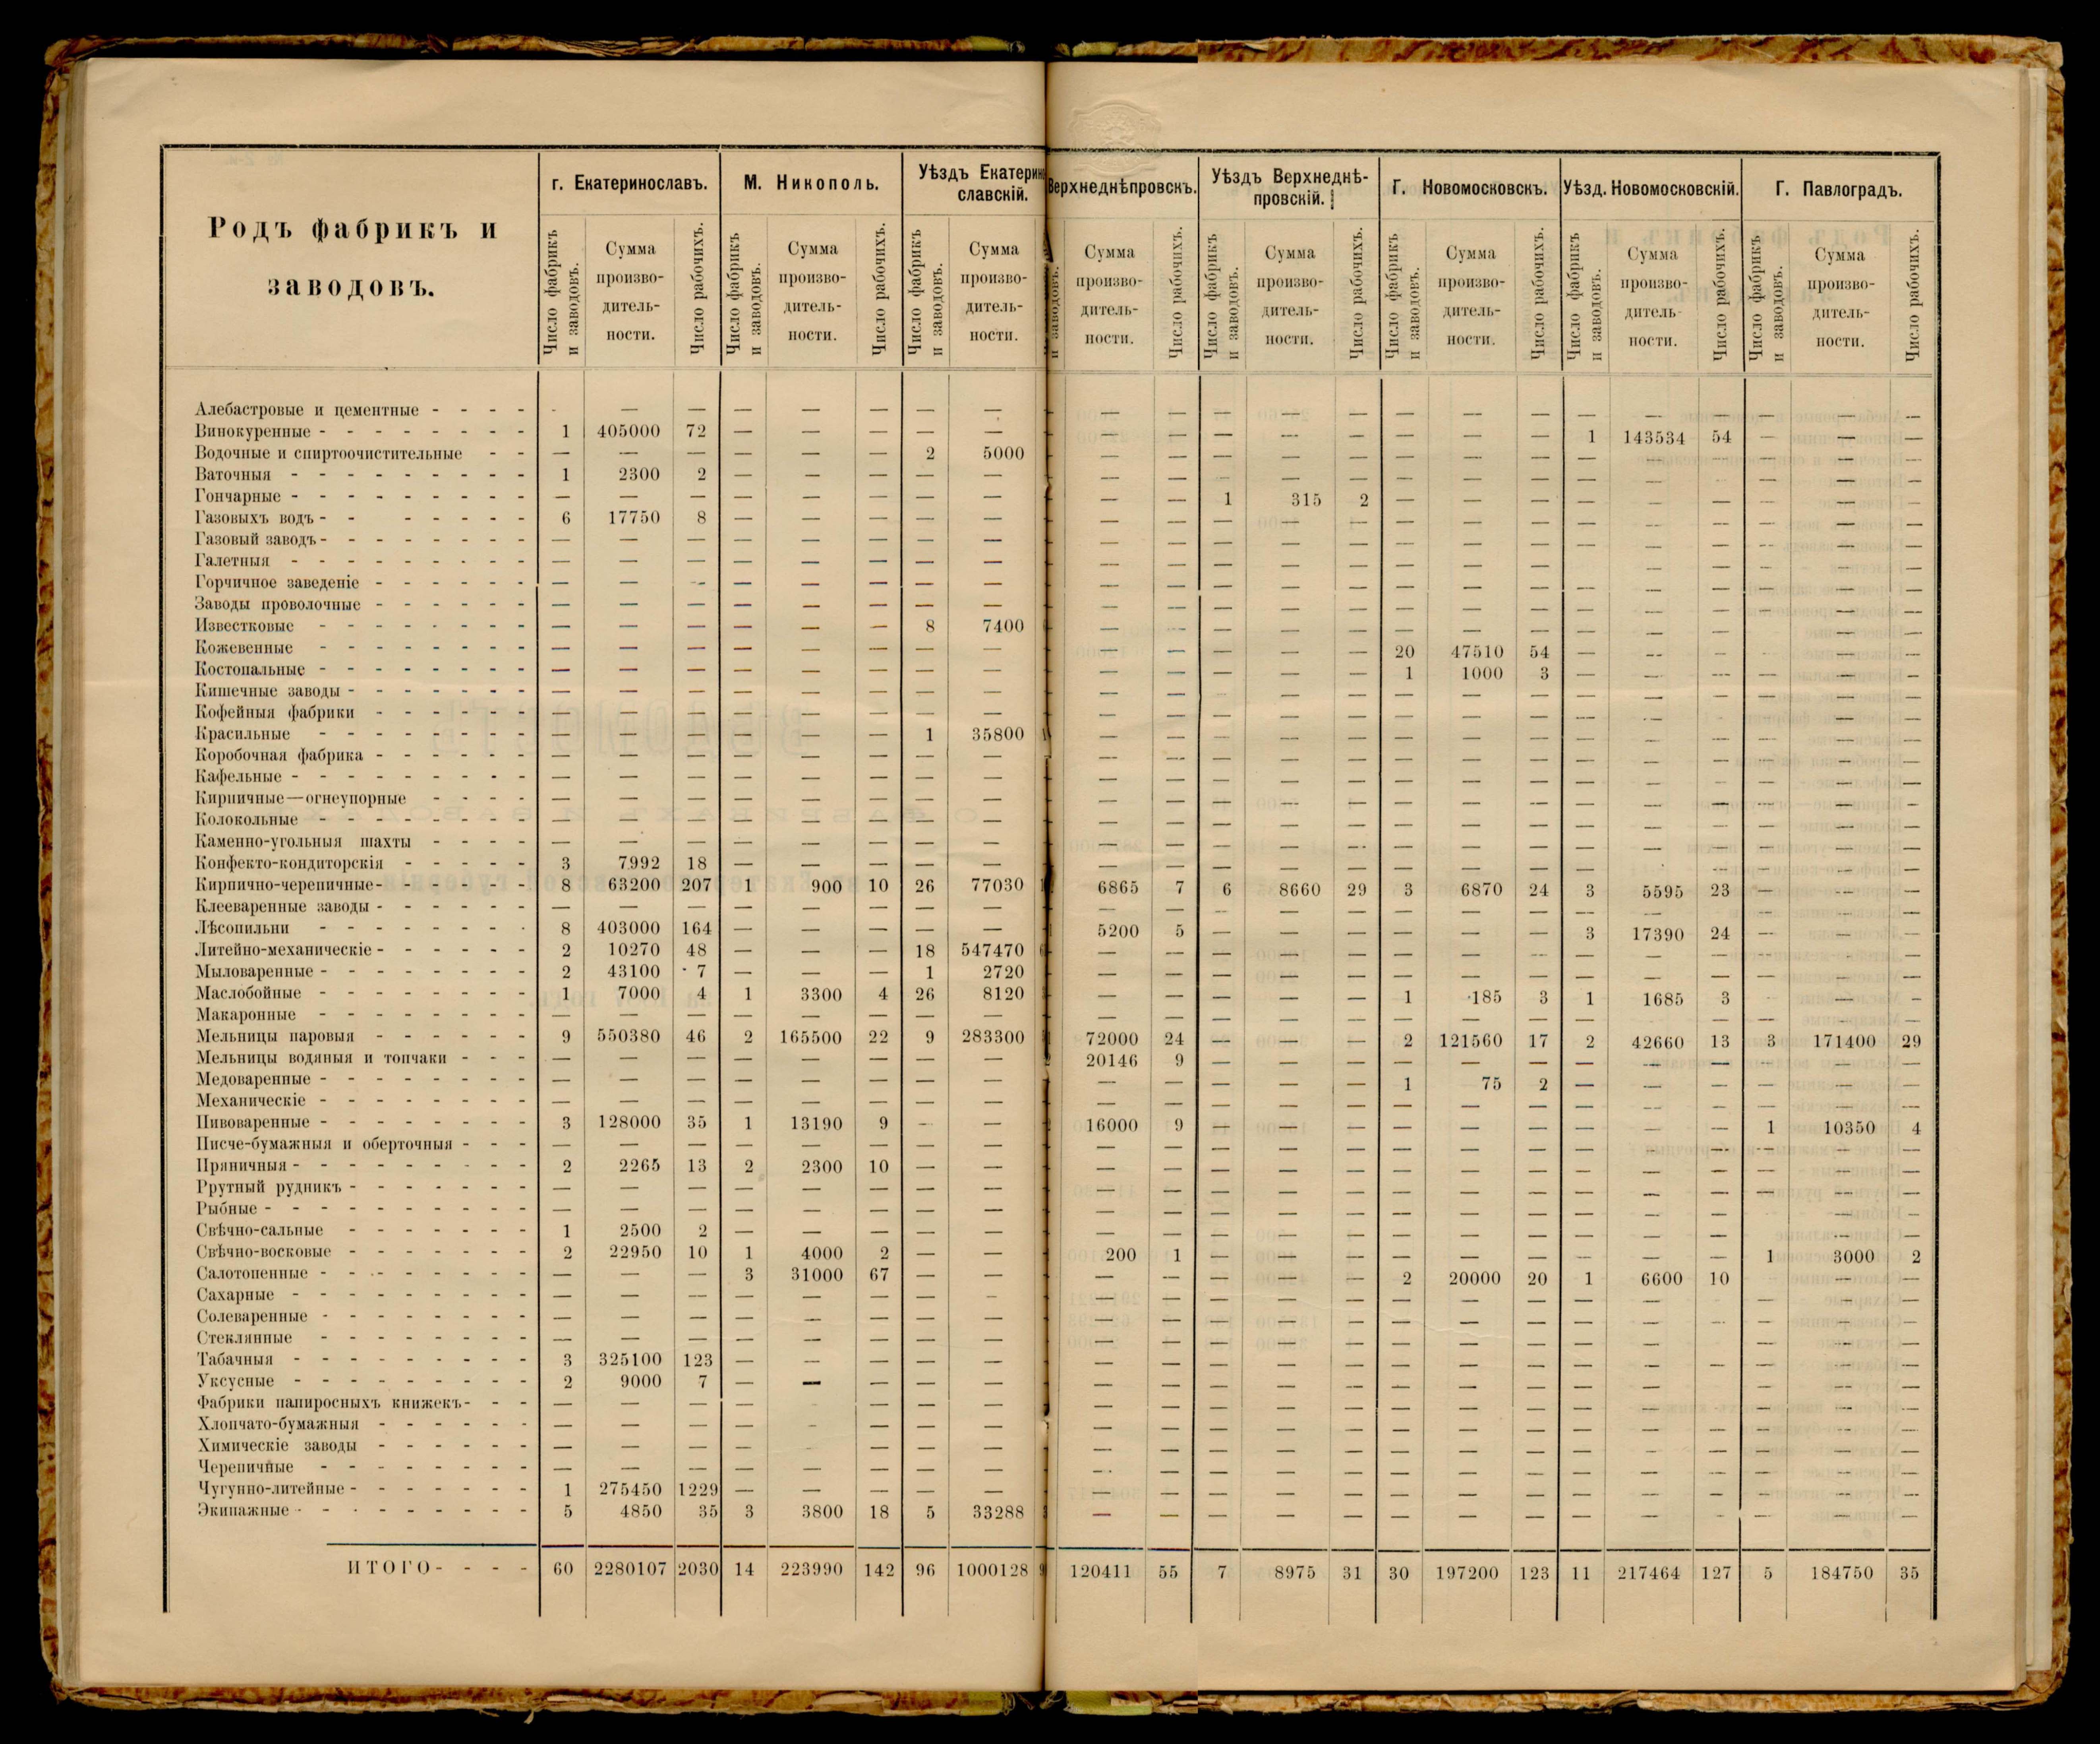 Родъ фабрикъ и заводовъ.
г. Екатеринославъ. М. Никополь. Уѣздъ Екатерин славскій. Верхнеднѣпровскъ. Уѣздъ Верхнеднѣ- провскій. Г. Новомосковскъ. Уѣзд. Новомосковскій. Г. Павлоградъ.
Число фабрикъ и заводовъ. Сумма произво- дитель- ности. Число рабочихъ. Число фабрикъ и заводовъ. Сумма произво- дитель- ности. Число рабочихъ. Число фабрикъ и заводовъ. Сумма произво- дитель- ности. и заводовъ. Сумма произво- дитель- ности. Число рабочихъ. Число фабрикъ и заводовъ. Сумма произво- дитель- ности. Число рабочихъ. Число фабрикъ и заводовъ. Сумма произво- дитель- ности. Число рабочихъ. Число фабрикъ и заводовъ. Сумма произво- дитель- ности. Число рабочихъ. Число фабрикъ и заводовъ. Сумма произво- дитель- ности. Число рабочихъ.
Алебастровые и цементные - - - - - — — — — — — — — — — — — — — — — — — — — —
Винокуренные - - - - 1 405000 72 — — — — — — — — — — — — — 1 143534 54 — — —
Водочные и спиртоочистительные - - — — — — — — 2 5000 — — — — — — — — — — — — — —
Ваточныя - - - - 1 2300 2 — — — — — — — — — — — — — — — — — — —
Гончарные - - - - — — — — — — — — — — 1 315 2 — — — — — — — — —
Газовыхъ водъ - - - - 6 17750 8 — — — — — — — — — — — — — — — — — — —
Газовый заводъ - - - - — — — — — — — — — — — — — — — — — — — — — —
Галетныя - - - - — — — — — — — — — — — — — — — — — — — — — —
Горчичное заведеніе - - - - — — — — — — — — — — — — — — — — — — — — — —
Заводы проволочные - - - - — — — — — — — — — — — — — — — — — — — — — —
Известковые - - - - — — — — — — 8 7400 — — — — — — — — — — — — — —
Кожевенные - - - - — — — — — — — — — — — — — 20 47510 54 — — — — — —
Костопальные - - - - — — — — — — — — — — — — — 1 1000 3 — — — — — —
Кишечные заводы - - - - — — — — — — — — — — — — — — — — — — — — — —
Кофейныя фабрики - - - - — — — — — — — — — — — — — — — — — — — — — —
Красильные - - - - — — — — — — 1 35800 — — — — — — — — — — — — — —
Коробочная фабрика - - - - — — — — — — — — — — — — — — — — — — — — — —
Кафельные - - - - — — — — — — — — — — — — — — — — — — — — — —
Кирпичные—огнеупорные - - - - — — — — — — — — — — — — — — — — — — — — — —
Колокольные - - - - — — — — — — — — — — — — — — — — — — — — — —
Каменно-угольныя шахты - - - - — — — — — — — — — — — — — — — — — — — — — —
Конфекто-кондиторскія - - - - 3 7992 18 — — — — — — — — — — — — — — — — — — —
Кирпично-черепичные - - - - 8 63200 207 1 900 10 26 77030 6865 7 6 8660 29 3 6870 24 3 5595 23 — — —
Клееваренные заводы - - - - — — — — — — — — — — — — — — — — — — — — — —
Лѣсопильни - - - - 8 403000 164 — — — — — 5200 5 — — — — — — 3 17390 24 — — —
Литейно-механическіе - - - - 2 10270 48 — — — 18 547470 — — — — — — — — — — — — — —
Мыловаренные - - - - 2 43100 7 — — — 1 2720 — — — — — — — — — — — — — —
Маслобойные - - - - 1 7000 4 1 3300 4 26 8120 — — — — — 1 185 3 1 1685 3 — — —
Макаронные - - - - — — — — — — — — — — — — — — — — — — — — — —
Мельницы паровыя - - - - 9 550380 46 2 165500 22 9 283300 72000 24 — — — 2 121560 17 2 42660 13 3 171400 29
Мельницы водяныя и топчаки - - - — — — — — — — — 20146 9 — — — — — — — — — — — —
Медоваренные - - - - — — — — — — — — — — — — — 1 75 2 — — — — — —
Механическіе - - - - — — — — — — — — — — — — — — — — — — — — — —
Пивоваренные - - - - 3 128000 35 1 13190 9 - — 16000 9 — — — — — — — — — 1 10350 4
Писче-бумажныя и оберточныя - - - — — — — — — — — — — — — — — — — — — — — — —
Пряничныя - - - - 2 2265 13 2 2300 10 — — — — — — — — — — — — — — — —
Ррутный рудникъ - - - - — — — — — — — — — — — — — — — — — — — — — —
Рыбные - - - - — — — — — — — — — — — — — — — — — — — — — —
Свѣчно-сальные - - - - 1 2500 2 — — — — — — — — — — — — — — — — — — —
Свѣчно-восковые - - - - 2 22950 10 1 4000 2 — — 200 1 — — — — — — — — — 1 3000 2
Салотопенные - - - - — — — 3 31000 67 — — — — — — — 2 20000 20 1 6600 10 — — —
Сахарные - - - - — — — — — — — - — — — — — — — — — — — — — —
Солеваренные - - - - — — — — — — — — — — — — — — — — — — — — — —
Стеклянные - - - - — — — — — — — — — — — — — — — — — — — — — —
Табачныя - - - - 3 325100 123 — — — — — — — — — — — — — — — — — — —
Уксусные - - - - 2 9000 7 — — — — — — — — — — — — — — — — — — —
Фабрики папиросныхъ книжекъ - - - — — — — — — — — — — — — — — — — — — — — — —
Хлопчато-бумажныя - - - - — — — — — — — — — — — — — — — — — — — — — —
Химическіе заводы - - - - — — — — — — — — — — — — — — — — — — — — — —
Черепичные - - - - — — — — — — — — — — — — — — — — — — — — — —
Чугунно-литейные - - - - 1 275450 1229 — — — — — — — — — — — — — — — — — — —
Экипажные - - - - 5 4850 35 3 3800 18 5 33288 — — — — — — — — — — — — — —
ИТОГО - - - - 60 2280107 2030 14 223990 142 96 1000128 120411 55 7 8975 31 30 197200 123 11 217464 127 5 184750 35